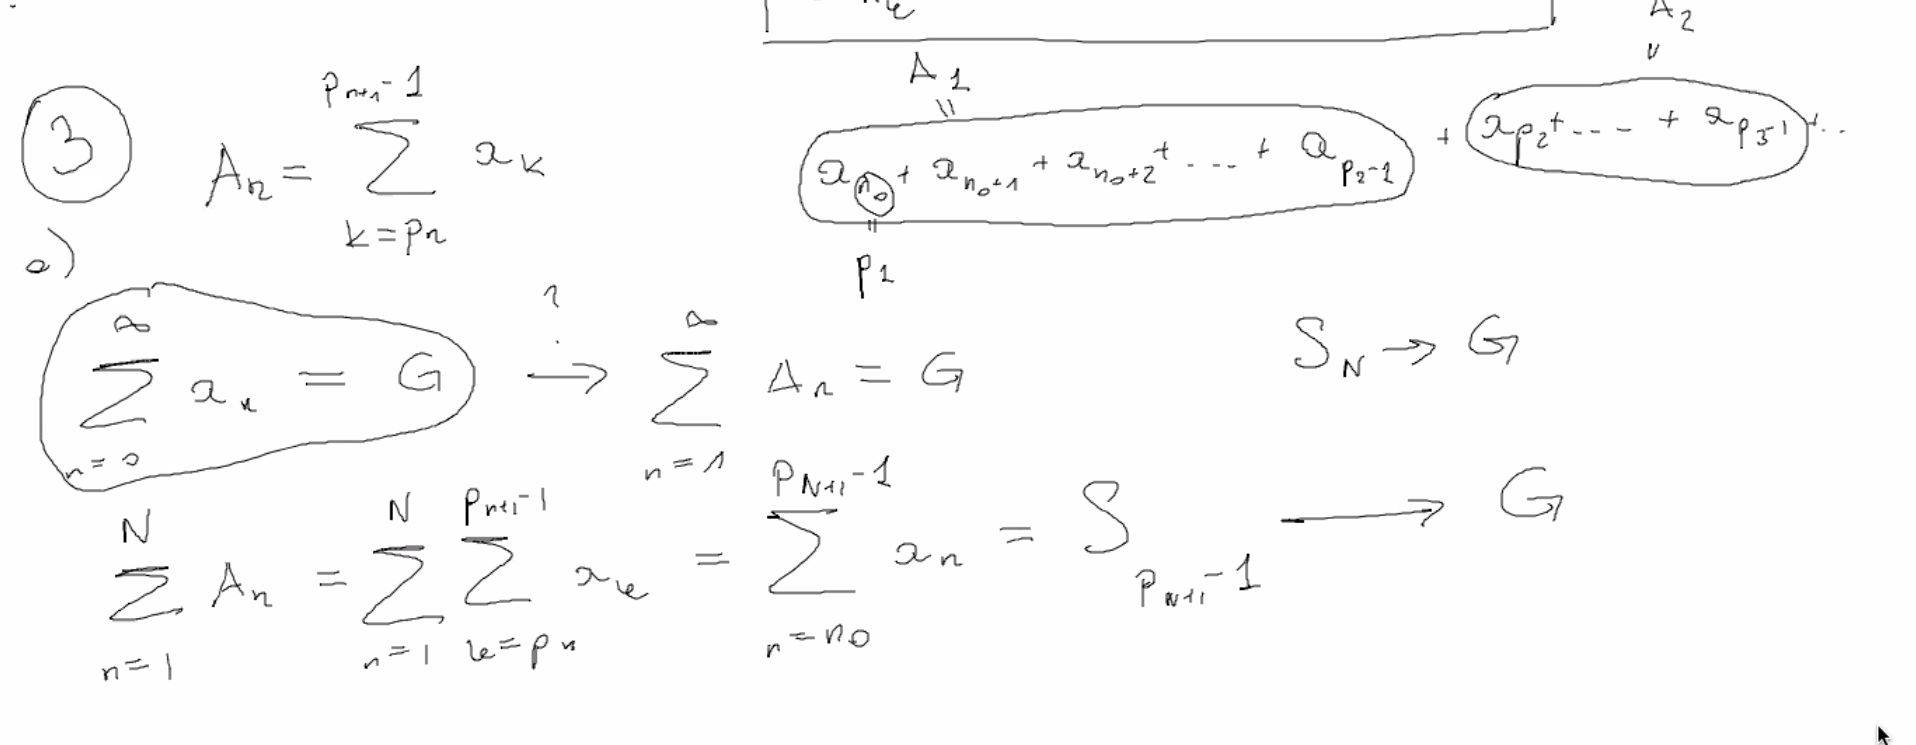 A_2
③ A_n = \sum_{k=p_n}^{p_{n+1}-1} x_k
A_1 = x_{n_0} + x_{n_0+1} + x_{n_0+2} + .... + a_{p_2-1} + x_{p_2} + .... + x_{p_3-1} + ...
n_0 = p_1
a)
\sum_{n=0}^{\infty} x_n = G \overset{?}{\to} \sum_{n=1}^{\infty} A_n = G
S_N \to G
\sum_{n=1}^{N} A_n = \sum_{n=1}^{N} \sum_{k=p_n}^{p_{n+1}-1} x_k = \sum_{n=n_0}^{p_{N+1}-1} x_n = S_{p_{N+1}-1} \to G